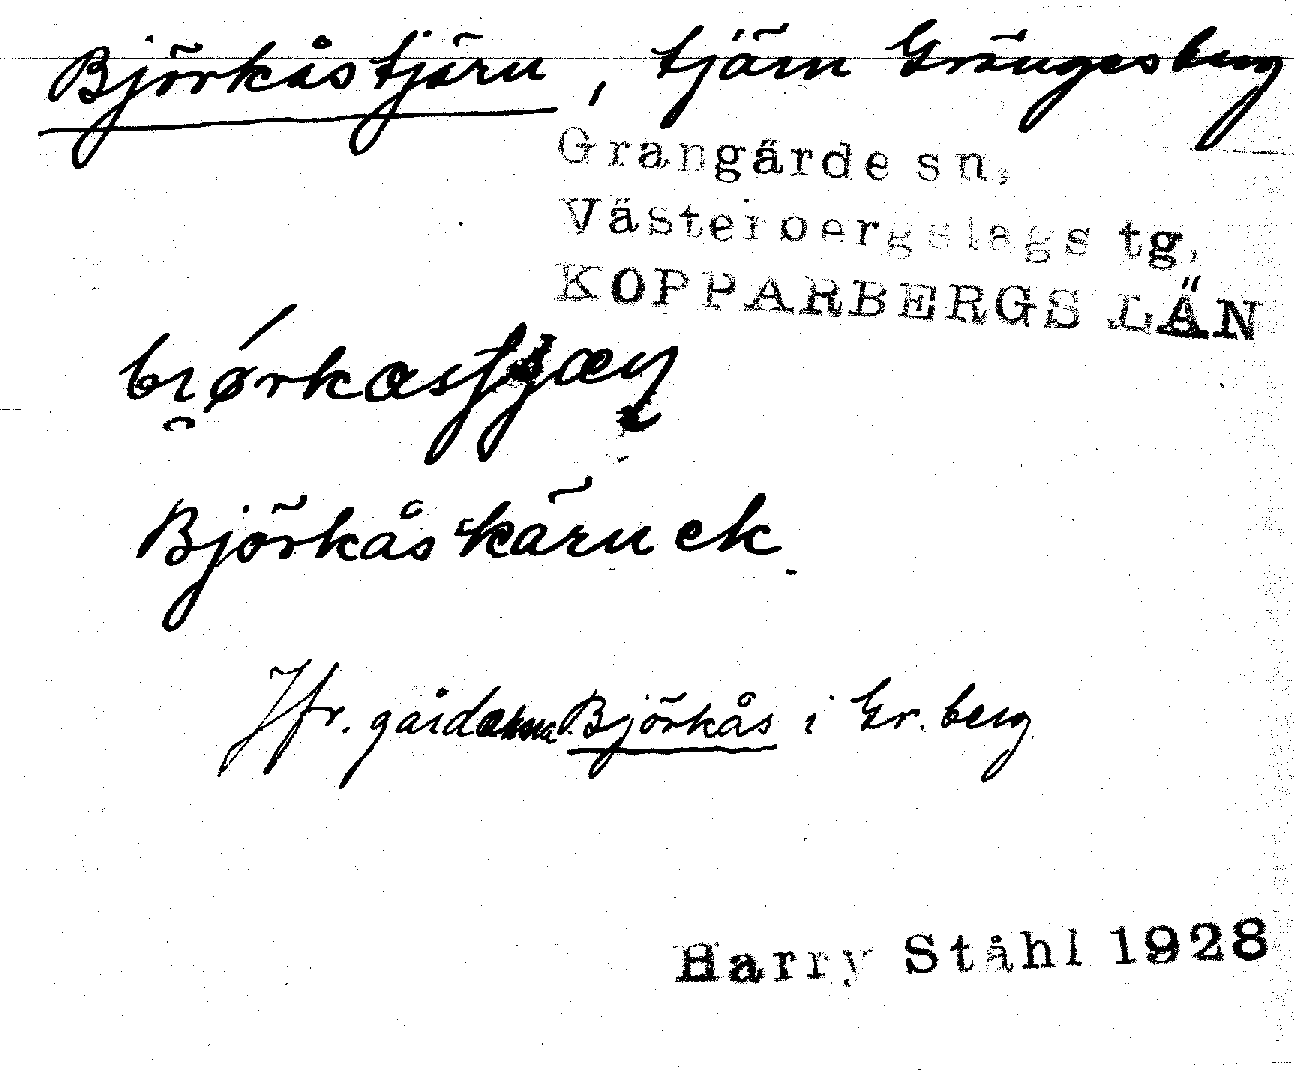 Björkåstjärn, tjärn Grängesberg
Grangärde sn,
Västerbergslags tg,
KOPPARBERGS LÄN
Björkåskärn ek.
Jfr. gårdarna Björkås i Gr.berg
Harry Ståhl 1928